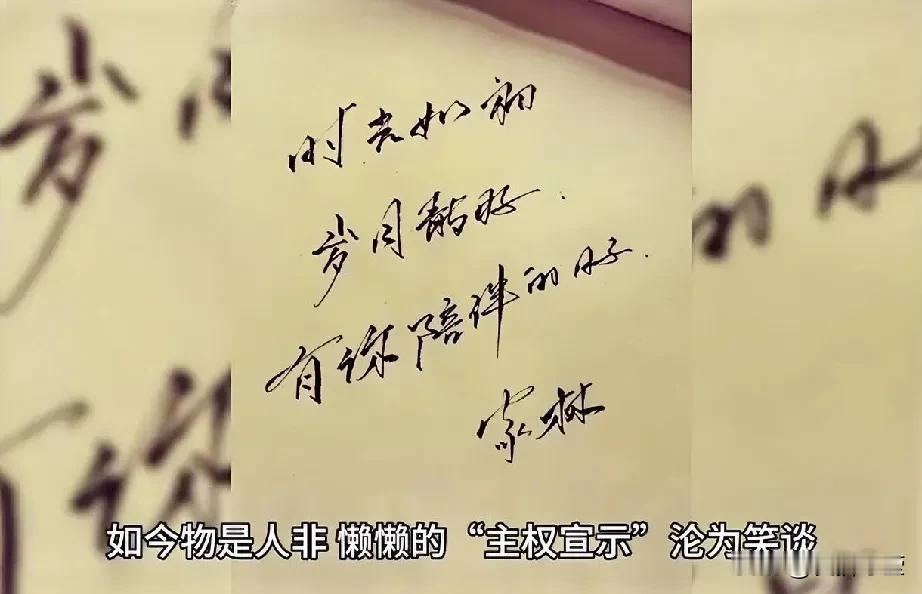 时光如初
岁月静好.
有你陪伴的日子.
家林
如今物是人非 懒懒的“主权宣示”沦为笑谈